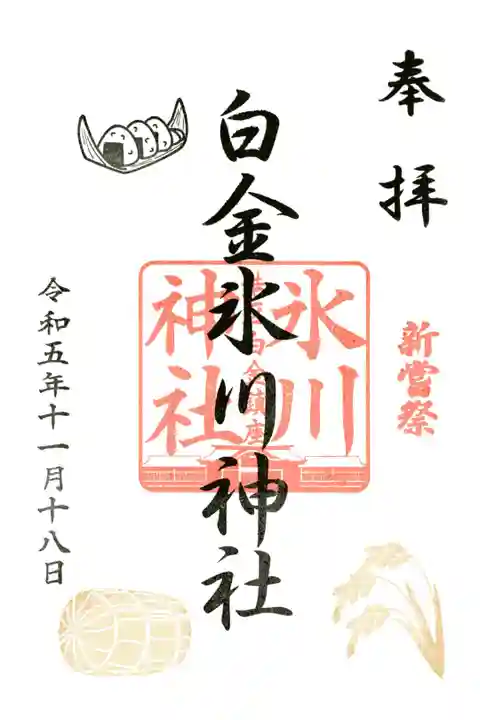 奉拝
新嘗祭
白金氷川神社
氷川
港区白金鎮座
神社
令和五年十一月十八日